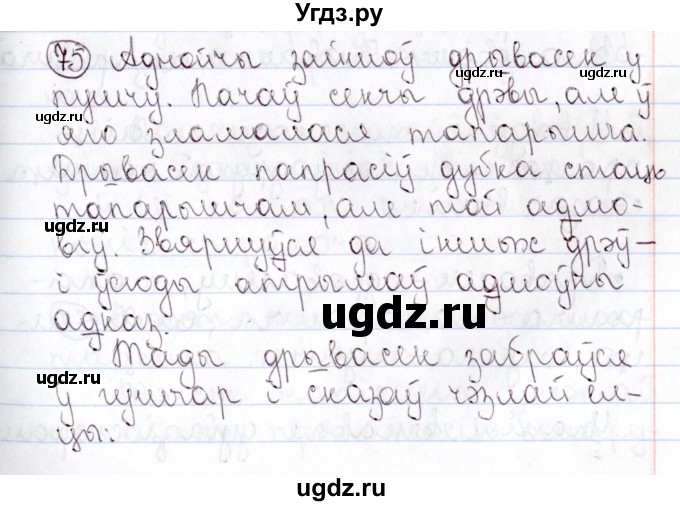 Угдз.ру
75 Аднойчы зайшоў дрывасек у
пушчу. Пачаў секчы дрэвы, але ў
яго зламалася тапарышча.
Дрывасек папрасіў дубка стаць
тапарышчам, але той адмо-
віў. Звярнуўся да іншых дрэў –
і ўсюды атрымаў адмоўны
адказ.
Тады дрывасек забраўся
ў гушчар і сказаў чэзлай ел-
цы:
ugdz.ru
ugdz.ru
ugdz.ru
ugdz.ru
ugdz.ru
ugdz.ru
ugdz.ru